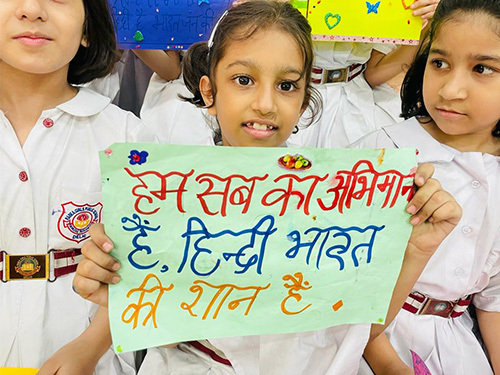 हम सब का अभिमान
हैं, हिन्दी भारत
की शान हैं.